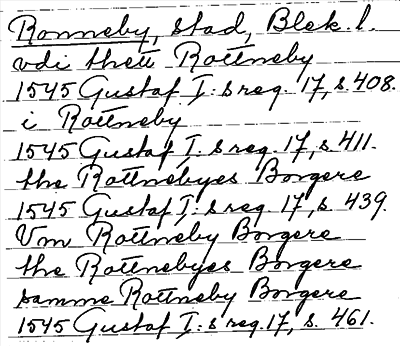 Ronneby, stad, Blek. l.
vdi thett Rottneby
1545 Gustaf I:s reg. 17, s. 408.
i Rottneby
1545 Gustaf I:s reg. 17, s. 411.
the Rottnebyes Borgere
1545 Gustaf I:s reg. 17, s. 439.
Vm Rottneby Borgere
the Rottnebyes Borgere
samme Rottneby Borgere
1545 Gustaf I:s reg. 17, s. 461.